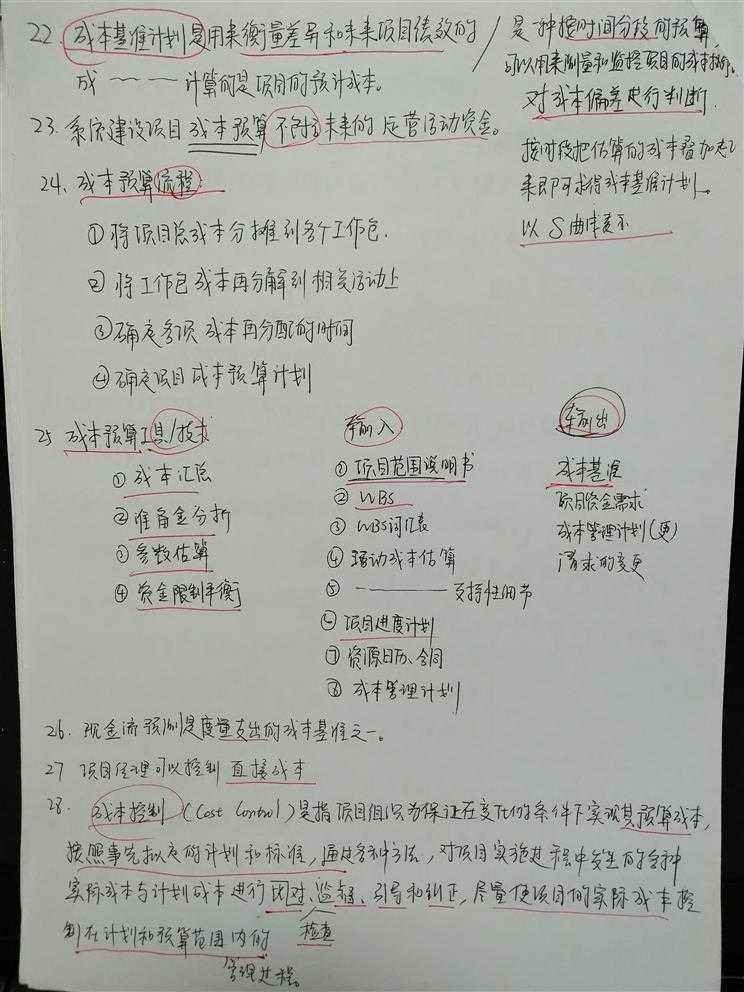 22. 成本基准计划是用来衡量差异和未来项目绩效的
成 — — — 计算的是项目的预计成本。
是一种按时间分段的预算,
可以用来测量和监控项目的成本执行
对成本偏差进行判断.
按时段把估算的成本叠加起
来即可求得成本基准计划。
以S曲线表示
23. 系统建设项目成本预算不包括未来的运营活动资金。
24. 成本预算流程:
①将项目总成本分摊到各个工作包.
②将工作包成本再分解到相关活动上
③确定各项成本再分配的时间
④确定项目成本预算计划
25 成本预算工具/技术
①成本汇总
②准备金分析
③参数估算
④资金限制平衡
输入
①项目范围说明书
②WBS
③WBS词汇表
④活动成本估算
⑤ ———— 支持性细节
⑥项目进度计划
⑦资源日历、合同
⑧成本管理计划
输出
成本基准
项目资金需求
成本管理计划(更)
请求的变更
26. 现金流预测是度量支出的成本基准之一。
27 项目经理可以控制直接成本
28. 成本控制 (Cost Control) 是指项目组织为保证在变化的条件下实现其预算成本,
按照事先拟定的计划和标准,通过各种方法,对项目实施过程中发生的各种
实际成本与计划成本进行比对、监督、引导和纠正,尽量使项目的实际成本控
检查
制在计划和预算范围内的
管理过程。